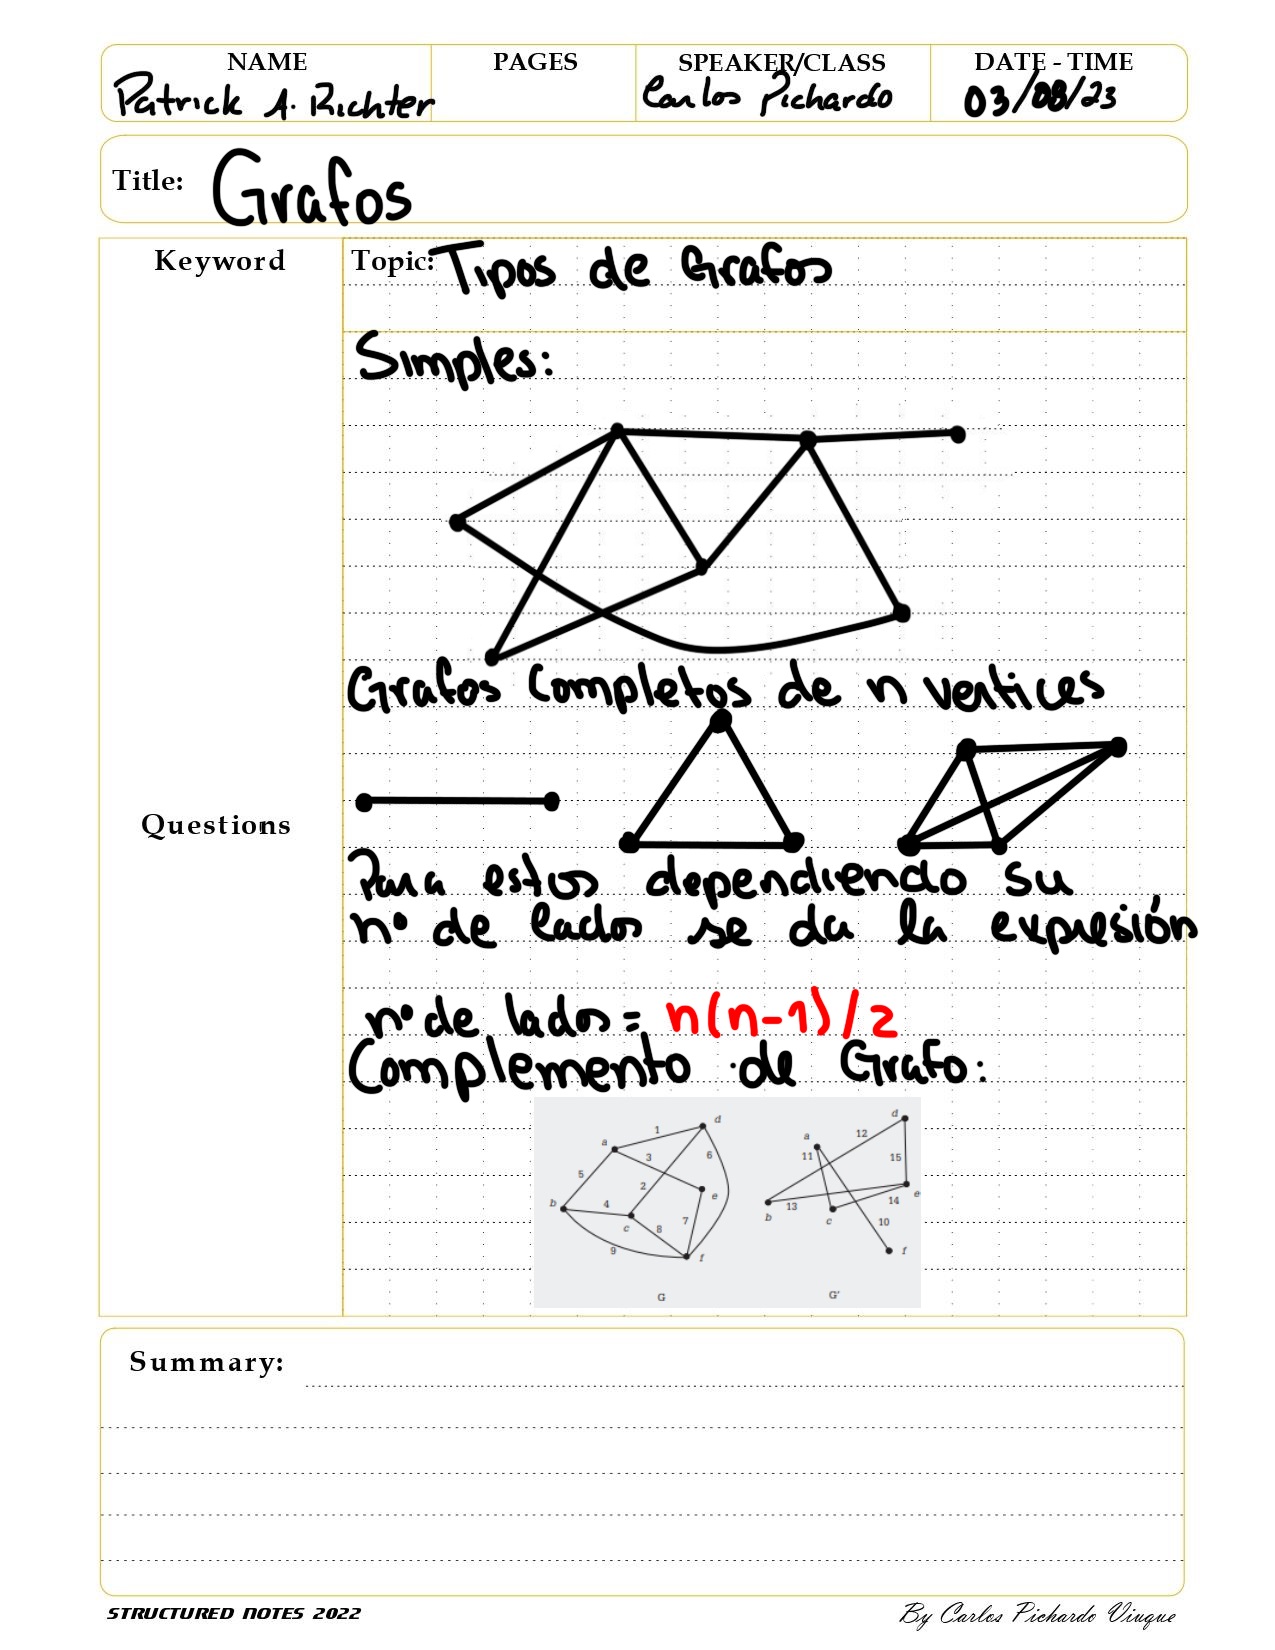 NAME PAGES SPEAKER/CLASS DATE - TIME
Patrick A. Richter Carlos Pichardo 03/08/23
Title: Grafos
Keyword
Topic: Tipos de Grafos
Simples:
Grafos Completos de n vertices
Questions
Para estos dependiendo su
nº de lados se da la expresión
nº de lados = n(n-1)/2
Complemento de Grafo:
a 1 d
5 3 6
2
b 4 e
c 8 7
9 f
G
d
a 12
11 15
e
b 13 c 14
10
f
G'
Summary:
STRUCTURED NOTES 2022 By Carlos Pichardo Viuque